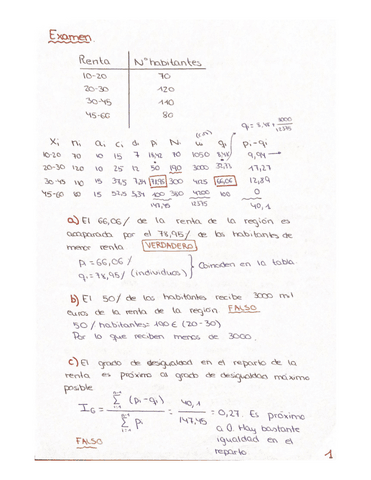 Examen.
Renta Nº habitantes
10-20 70
20-30 120
30-45 110
45-60 80
qi = 8,48 + 3000/12375
Xi ni ai ci di pi Ni ui qi pi-qi
10-20 70 10 15 7 18,42 70 1050 8,48 9,94
20-30 120 10 25 12 50 190 3000 32,73 17,27
30-45 110 15 37,5 7,34 78,95 300 4125 66,06 12,89
45-60 80 15 52,5 5,34 100 380 4200 100 0
147,45 40,1
a) El 66,06 / de la renta de la región es
acaparada por el 78,95 / de los habitantes de
menor renta VERDADERO
pi = 66,06 /
qi = 78,95 / (individuos) } Coinciden en la tabla
b) El 50 / de los habitantes recibe 3000 mil
euros de la renta de la región FALSO
50 / habitantes = 190 € (20-30)
Por lo que reciben menos de 3000.
c) El grado de desigualdad en el reparto de la
renta es próximo al grado de desigualdad máximo
posible
IG = Σ (pi - qi) / Σ pi = 40,1 / 147,45 = 0,27. Es próximo
a 0. Hay bastante
igualdad en el
reparto.
FALSO
1